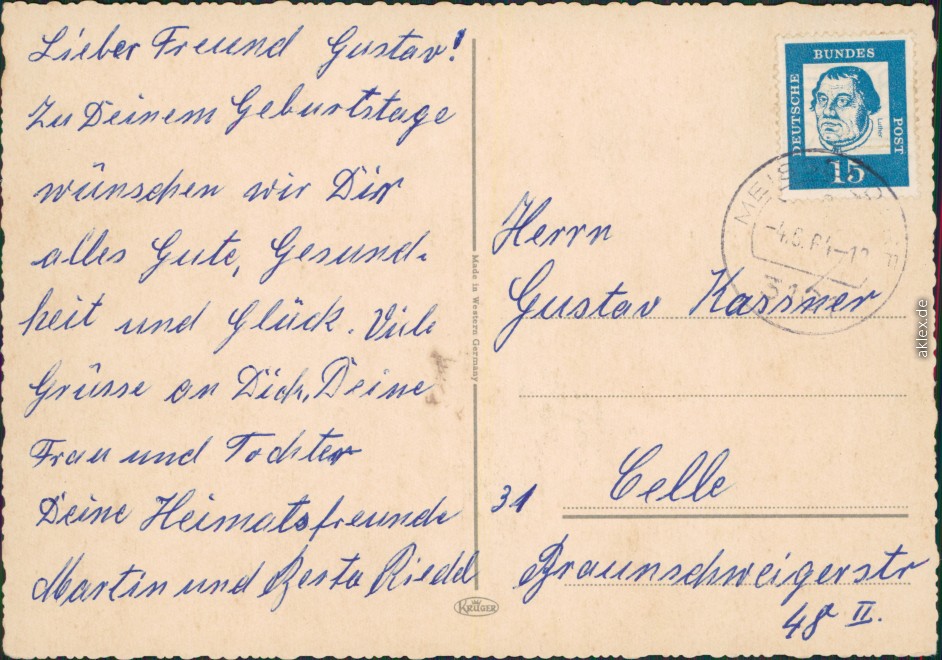 Lieber Freund Gustav!
Zu Deinem Geburtstage
wünschen wir Dir
alles Gute, Gesund-
heit und Glück. Viele
Grüsse an Dich, Deine
Frau und Tochter
Deine Heimatsfreunde
Martin und Berta Riedel
Made in Western Germany
KRÜGER
DEUTSCHE
BUNDES
POST
Luther
15
-4.6.64-12
Herrn
Gustav Kassner
31 Celle
Braunschweigerstr
48 II.
aklex.de